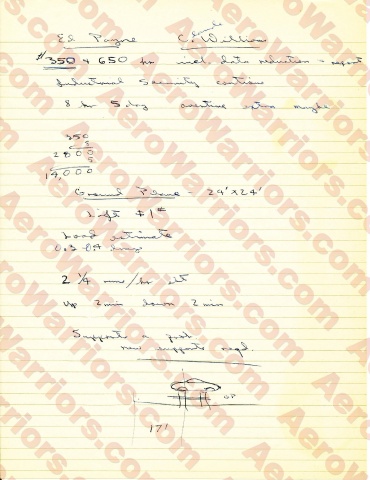 Ed Payne Charlie William
$350 & 650 hr incl data reduction - report
Industrial Security
8 hr 5 day overtime extra maybe
350
8
2800
5
14,000
Ground Plane - 24' x 24'
Lift ± 1#
Load estimate
2 1/4 hr
up 2 min down 2 min
Supports a
new supports reqd.
GP
17'
AeroWarriors.com